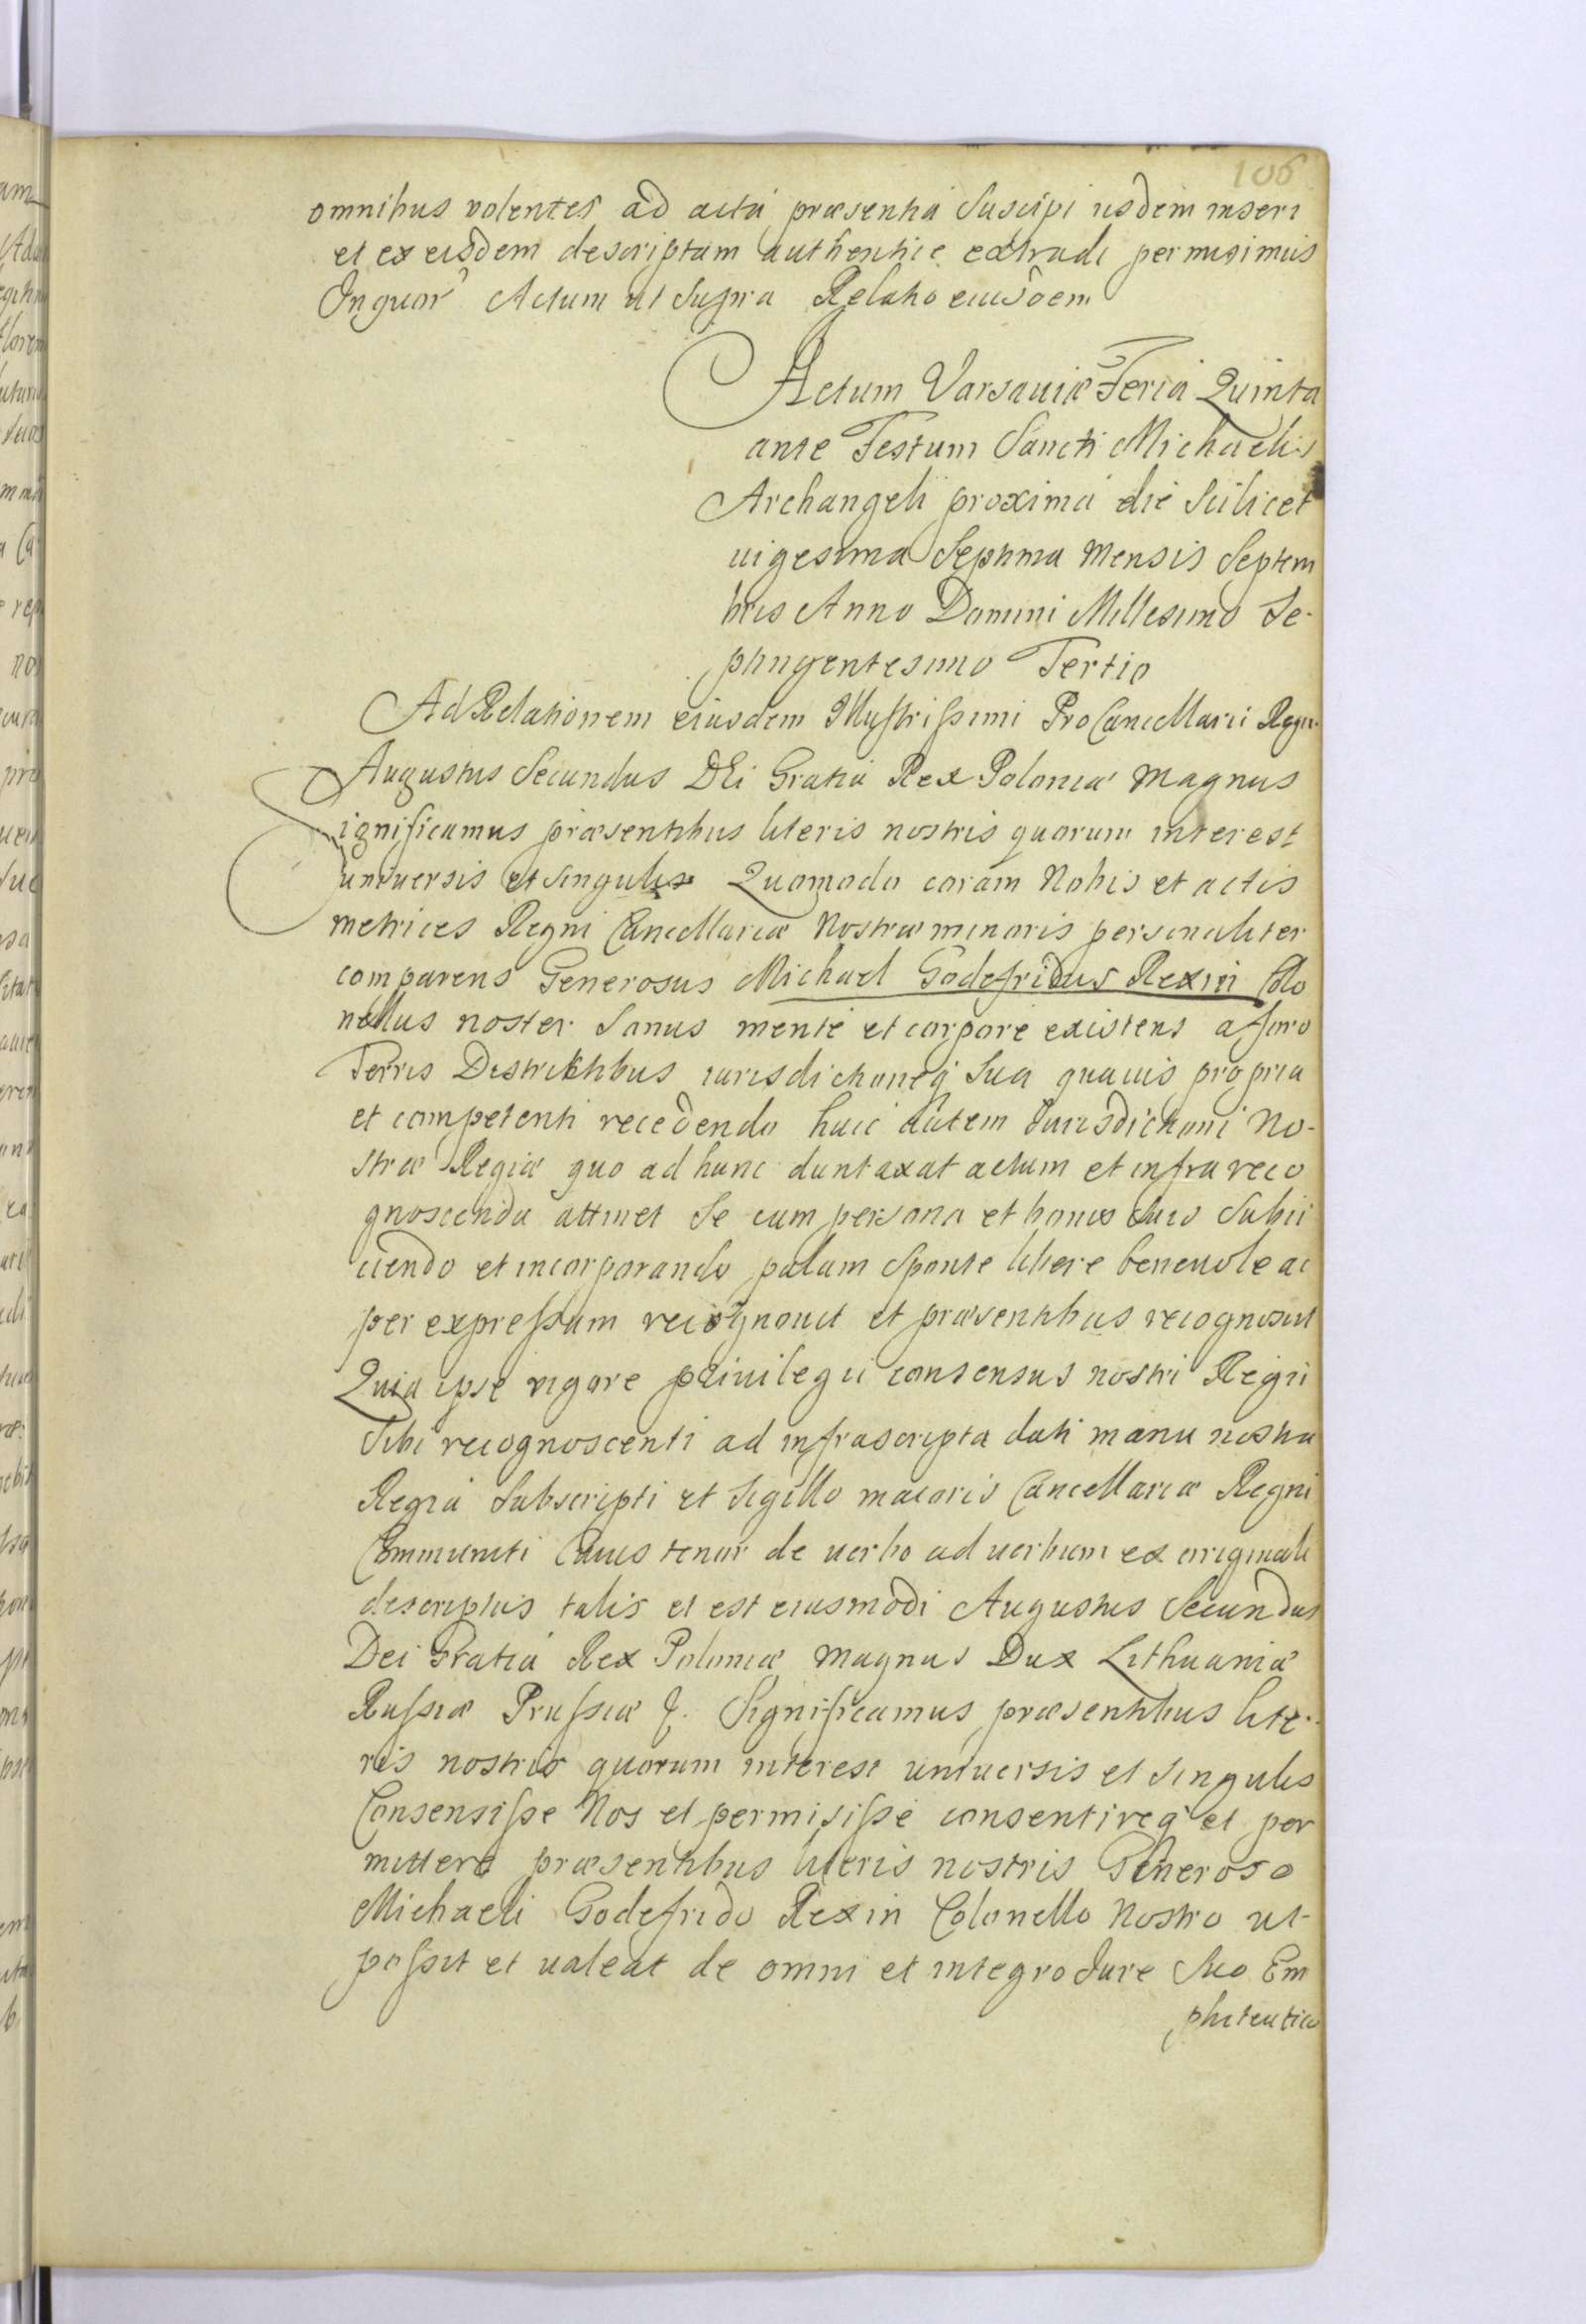 106
omnibus volentes ad acta præsentia Suscipi iisdem inseri
et ex eisdem descriptam authentice extradi permisimus
In quor Actum ut Supra Relatio eiusdem
Actum Varsaviæ Feria Quinta
ante Festum Sancti Michaelis
Archangeli proxima die Scilicet
uigesima Septima Mensis Septem
bris Anno Domini Millesimo Se-
ptingentesimo Tertio
Ad Relationem eiusdem Illustrissimi ProCancellarii Regni
Augustus Secundus DEi Gratia Rex Poloniæ Magnus
Significamus præsentibus literis nostris quorum interest
uniuersis et Singulis Quomodo coram Nobis et actis
metrices Regni Cancellariæ Nostræ minoris personaliter
comparens Generosus Michael Godefridus Rexin Colo
nellus noster Sanus mente et corpore existens a foro
Terris Districtibus iurisdictioneq Sua quauis propria
et competenti recedendo huic autem Jurisdictioni No-
stræ Regiæ quo ad hunc duntaxat actum et infra reco
gnoscenda attinet Se cum persona et bonis Suis Subii
ciendo et incorporando palam Sponte libere beneuole ac
per expressum recognouit et præsentibus recognoscit
Quia ipse vigore priuilegii consensus nostri Regii
Sibi recognoscenti ad infrascripta dati manu nostra
Regia Subscripti et Sigillo maioris Cancellariæ Regni
Communiti Cuius tenor de uerbo ad uerbum ex originali
descriptus talis et est eiusmodi Augustus Secundus
Dei Gratia Rex Poloniæ Magnus Dux Lithuaniæ
Russiæ Prussiæ &. Significamus præsentibus lite-
ris nostris quorum interest uniuersis et Singulis
Consensisse Nos et permisisse consentireq et per
mittere præsentibus literis nostris Generoso
Michaeli Godefrido Rexin Colonello Nostro ut-
possit et ualeat de omni et integro Jure Suo Em
phiteutico